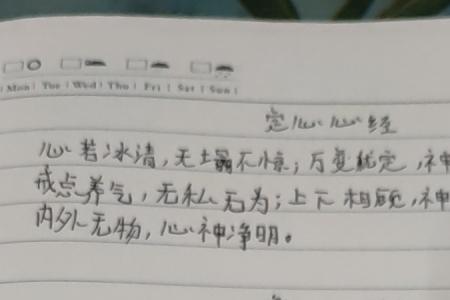 Mon | Tue | Wed | Thu | Fri | Sat | Sun |
定心心经
心若冰清，天塌不惊；万变犹定，神
戒点养气，无私无为；上下相顾，神
内外无物，心神净明。